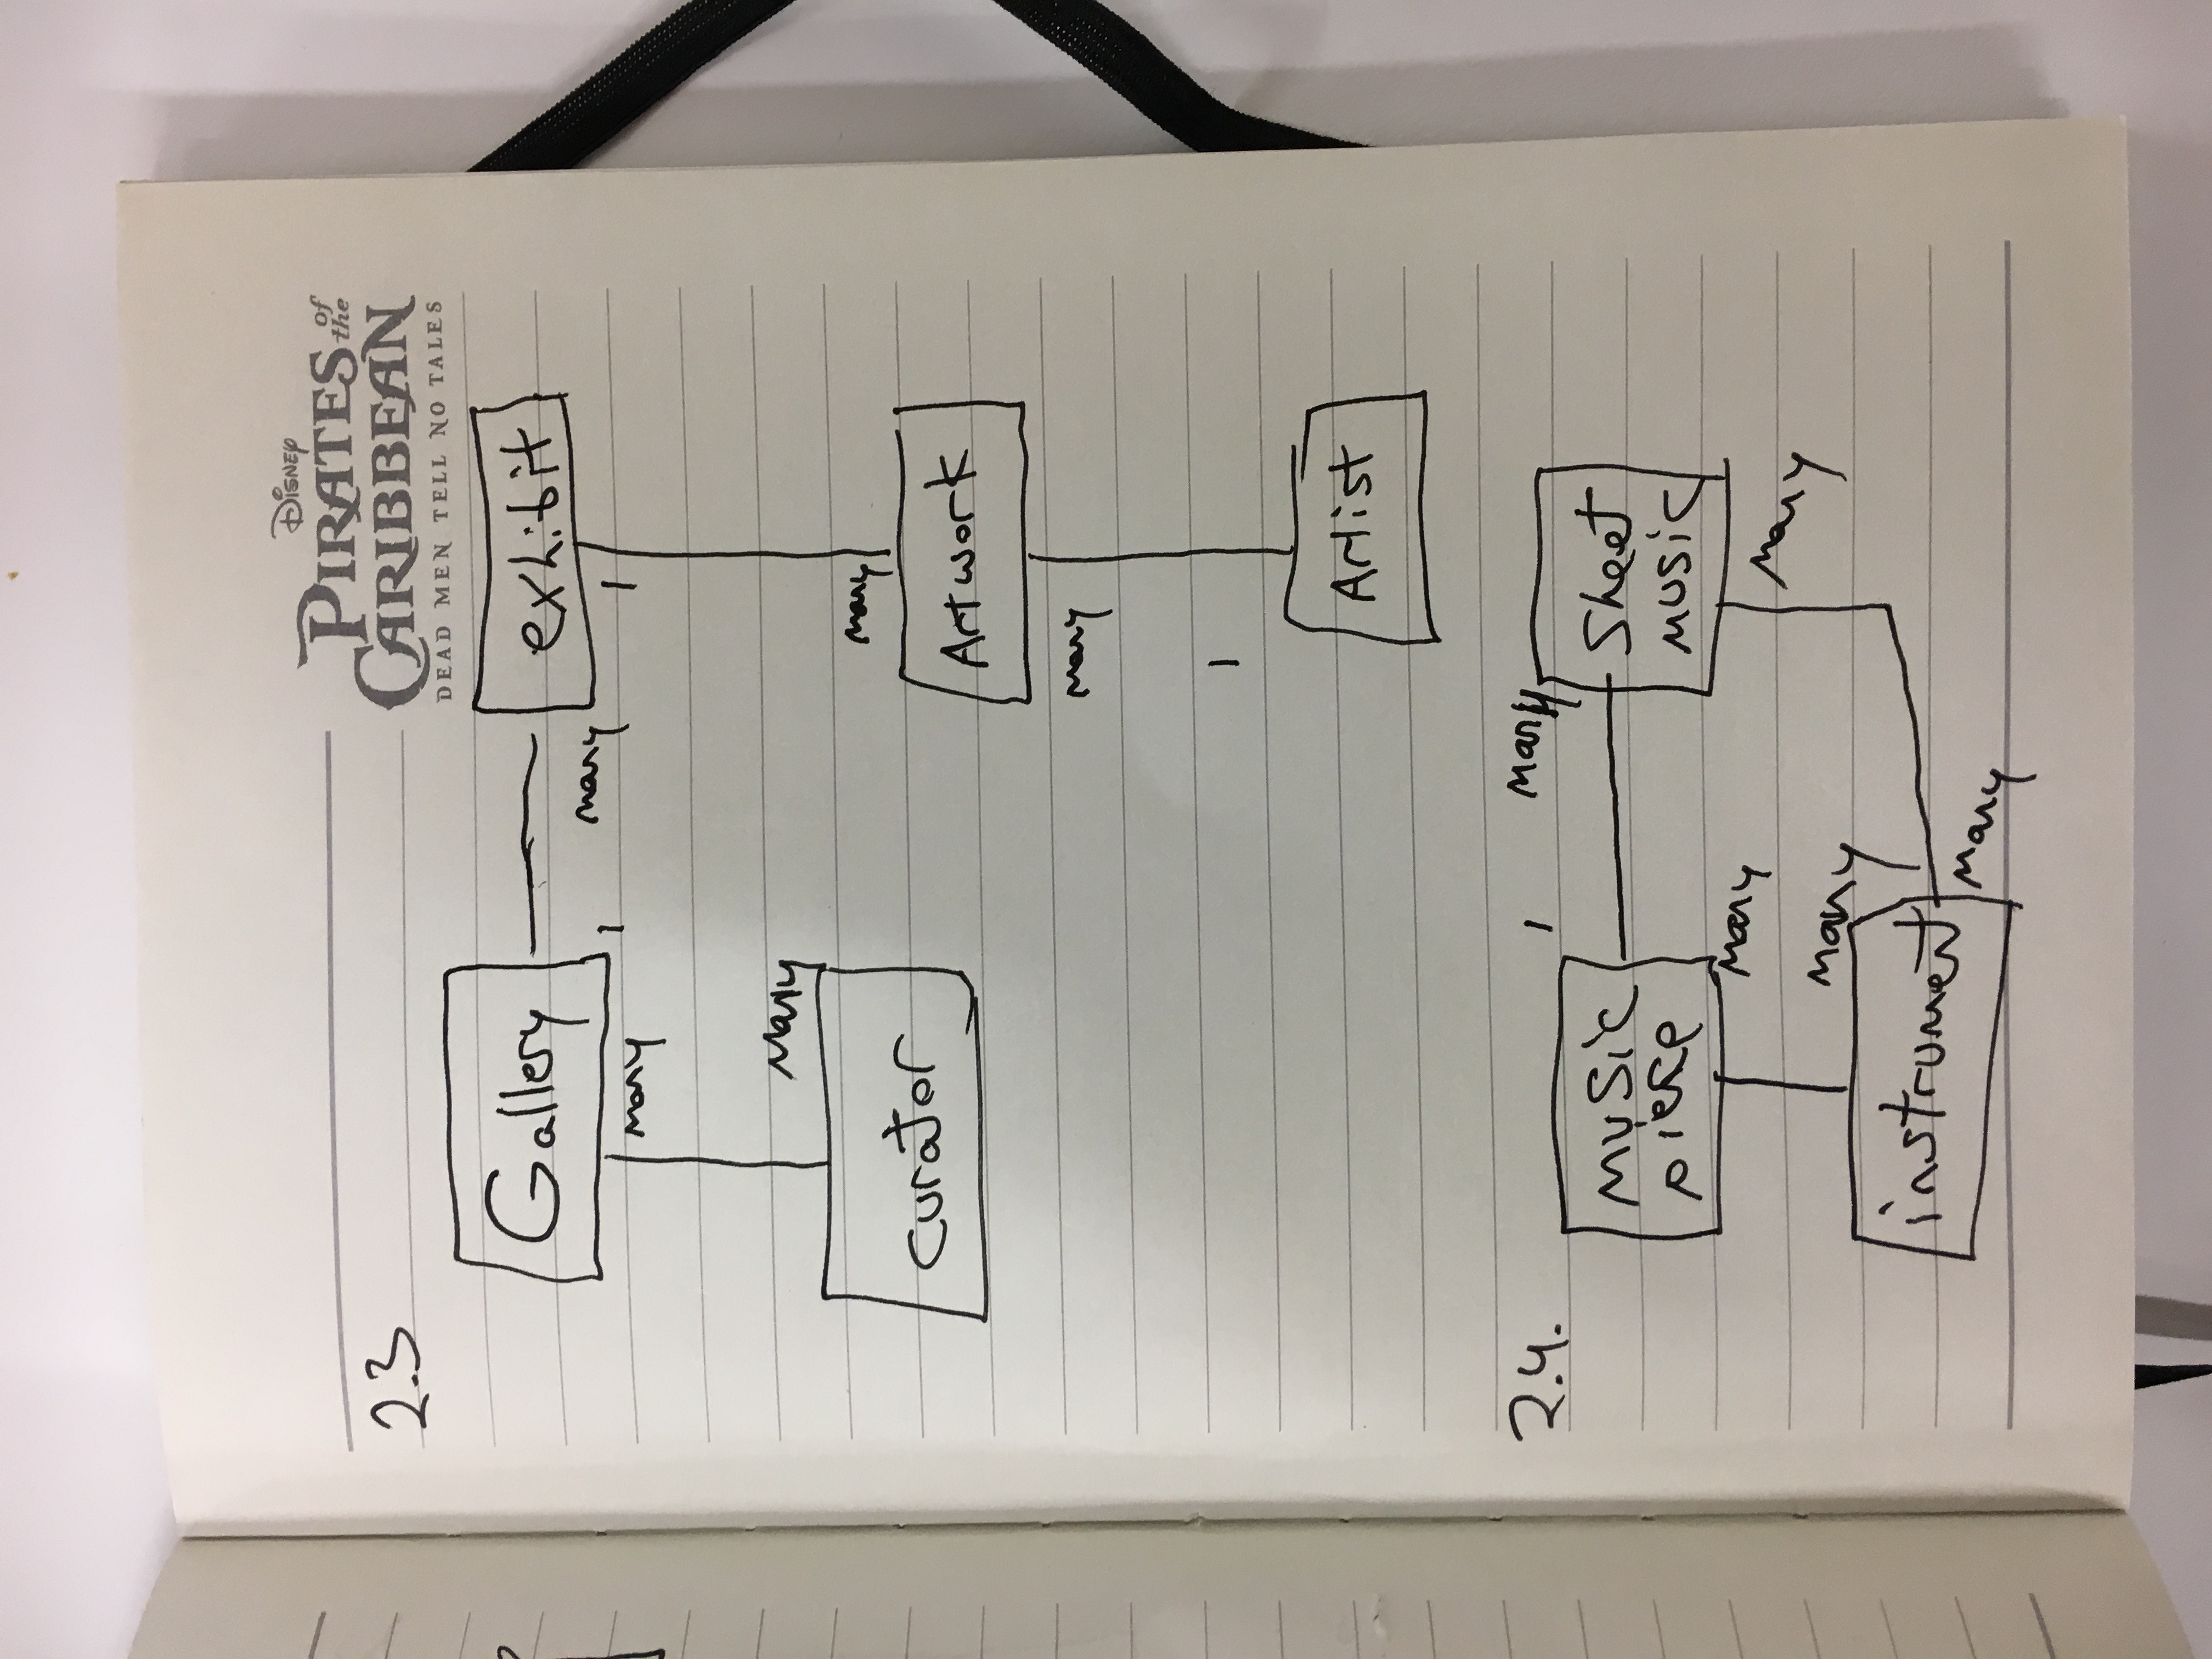 Disney
PIRATES of the
CARIBBEAN
DEAD MEN TELL NO TALES
2.3
Gallery
exhibit
many
1
1
many
many
curator
many
Artwork
many
1
Artist
2.4.
1
many
music
piece
Sheet
music
many
many
many
instrument
many